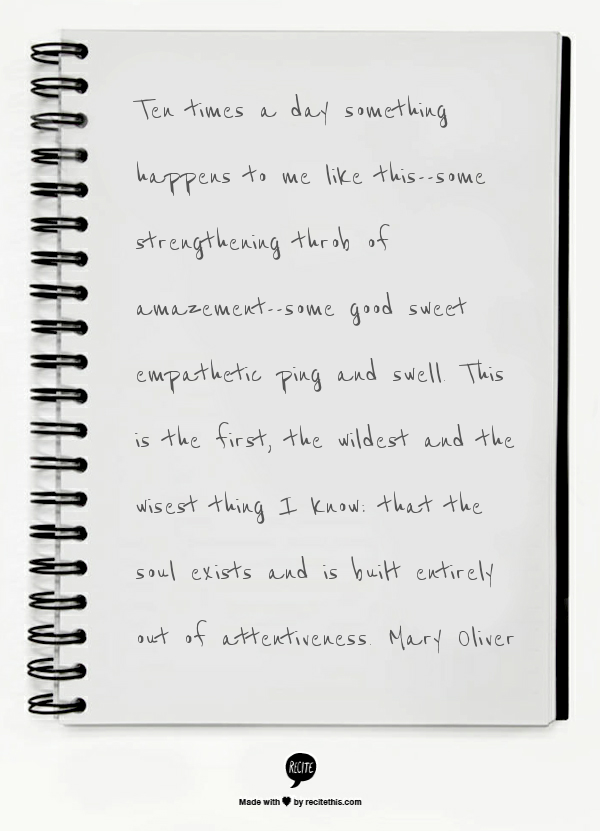 Ten times a day something
happens to me like this--some
strengthening throb of
amazement--some good sweet
empathetic ping and swell. This
is the first, the wildest and the
wisest thing I know: that the
soul exists and is built entirely
out of attentiveness. Mary Oliver
RECITE
Made with ♥ by recitethis.com